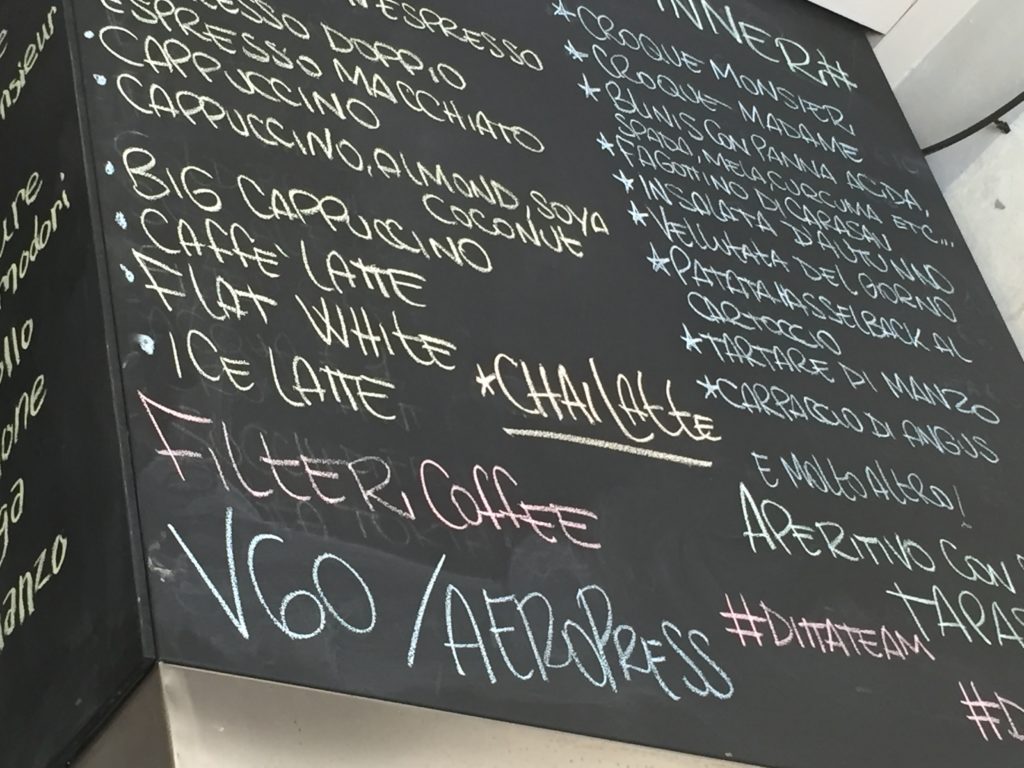 nsieur
ure
modori
ollo
one
ga
manzo
ESPRESSO
ESPRESSO DOPPIO
ESPRESSO MACCHIATO
CAPPUCCINO
CAPPUCCINO, ALMOND, SOYA
COCONUT
BIG CAPPUCCINO
CAFFE LATTE
FLAT WHITE
ICE LATTE
*CHAI LATTE
FILTER COFFEE
V60 / AEROPRESS
INNER!#
*CROQUE MONSIER
*CROQUE MADAME
*BLINIS CON PANNA ACIDA,
SPADA, MELA, CURCUMA ETC...
*FAGOTTINO DI CARASAU
*INSALATA D'AUTUNNO
*VELLUTATA DEL GIORNO
*PATATA HASSELBACK AL
CARTOCCIO
*TARTARE DI MANZO
*CARPACCIO DI ANGUS
E MOLTO ALTRO!
APERITIVO CON
TAPAS
#DITTATEAM
#D